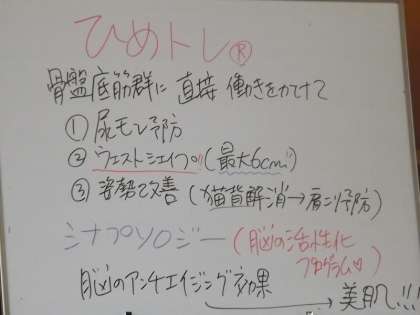 ひめトレ®
骨盤底筋群に 直接 働きをかけて
① 尿モレ予防
② ウェストシェイプ!!(最大6cm)
③ 姿勢改善(猫背解消→肩こり予防)
シナプソロジー(脳の活性化
プログラム♡)
脳のアンチエイジング効果
→ 美肌!!!